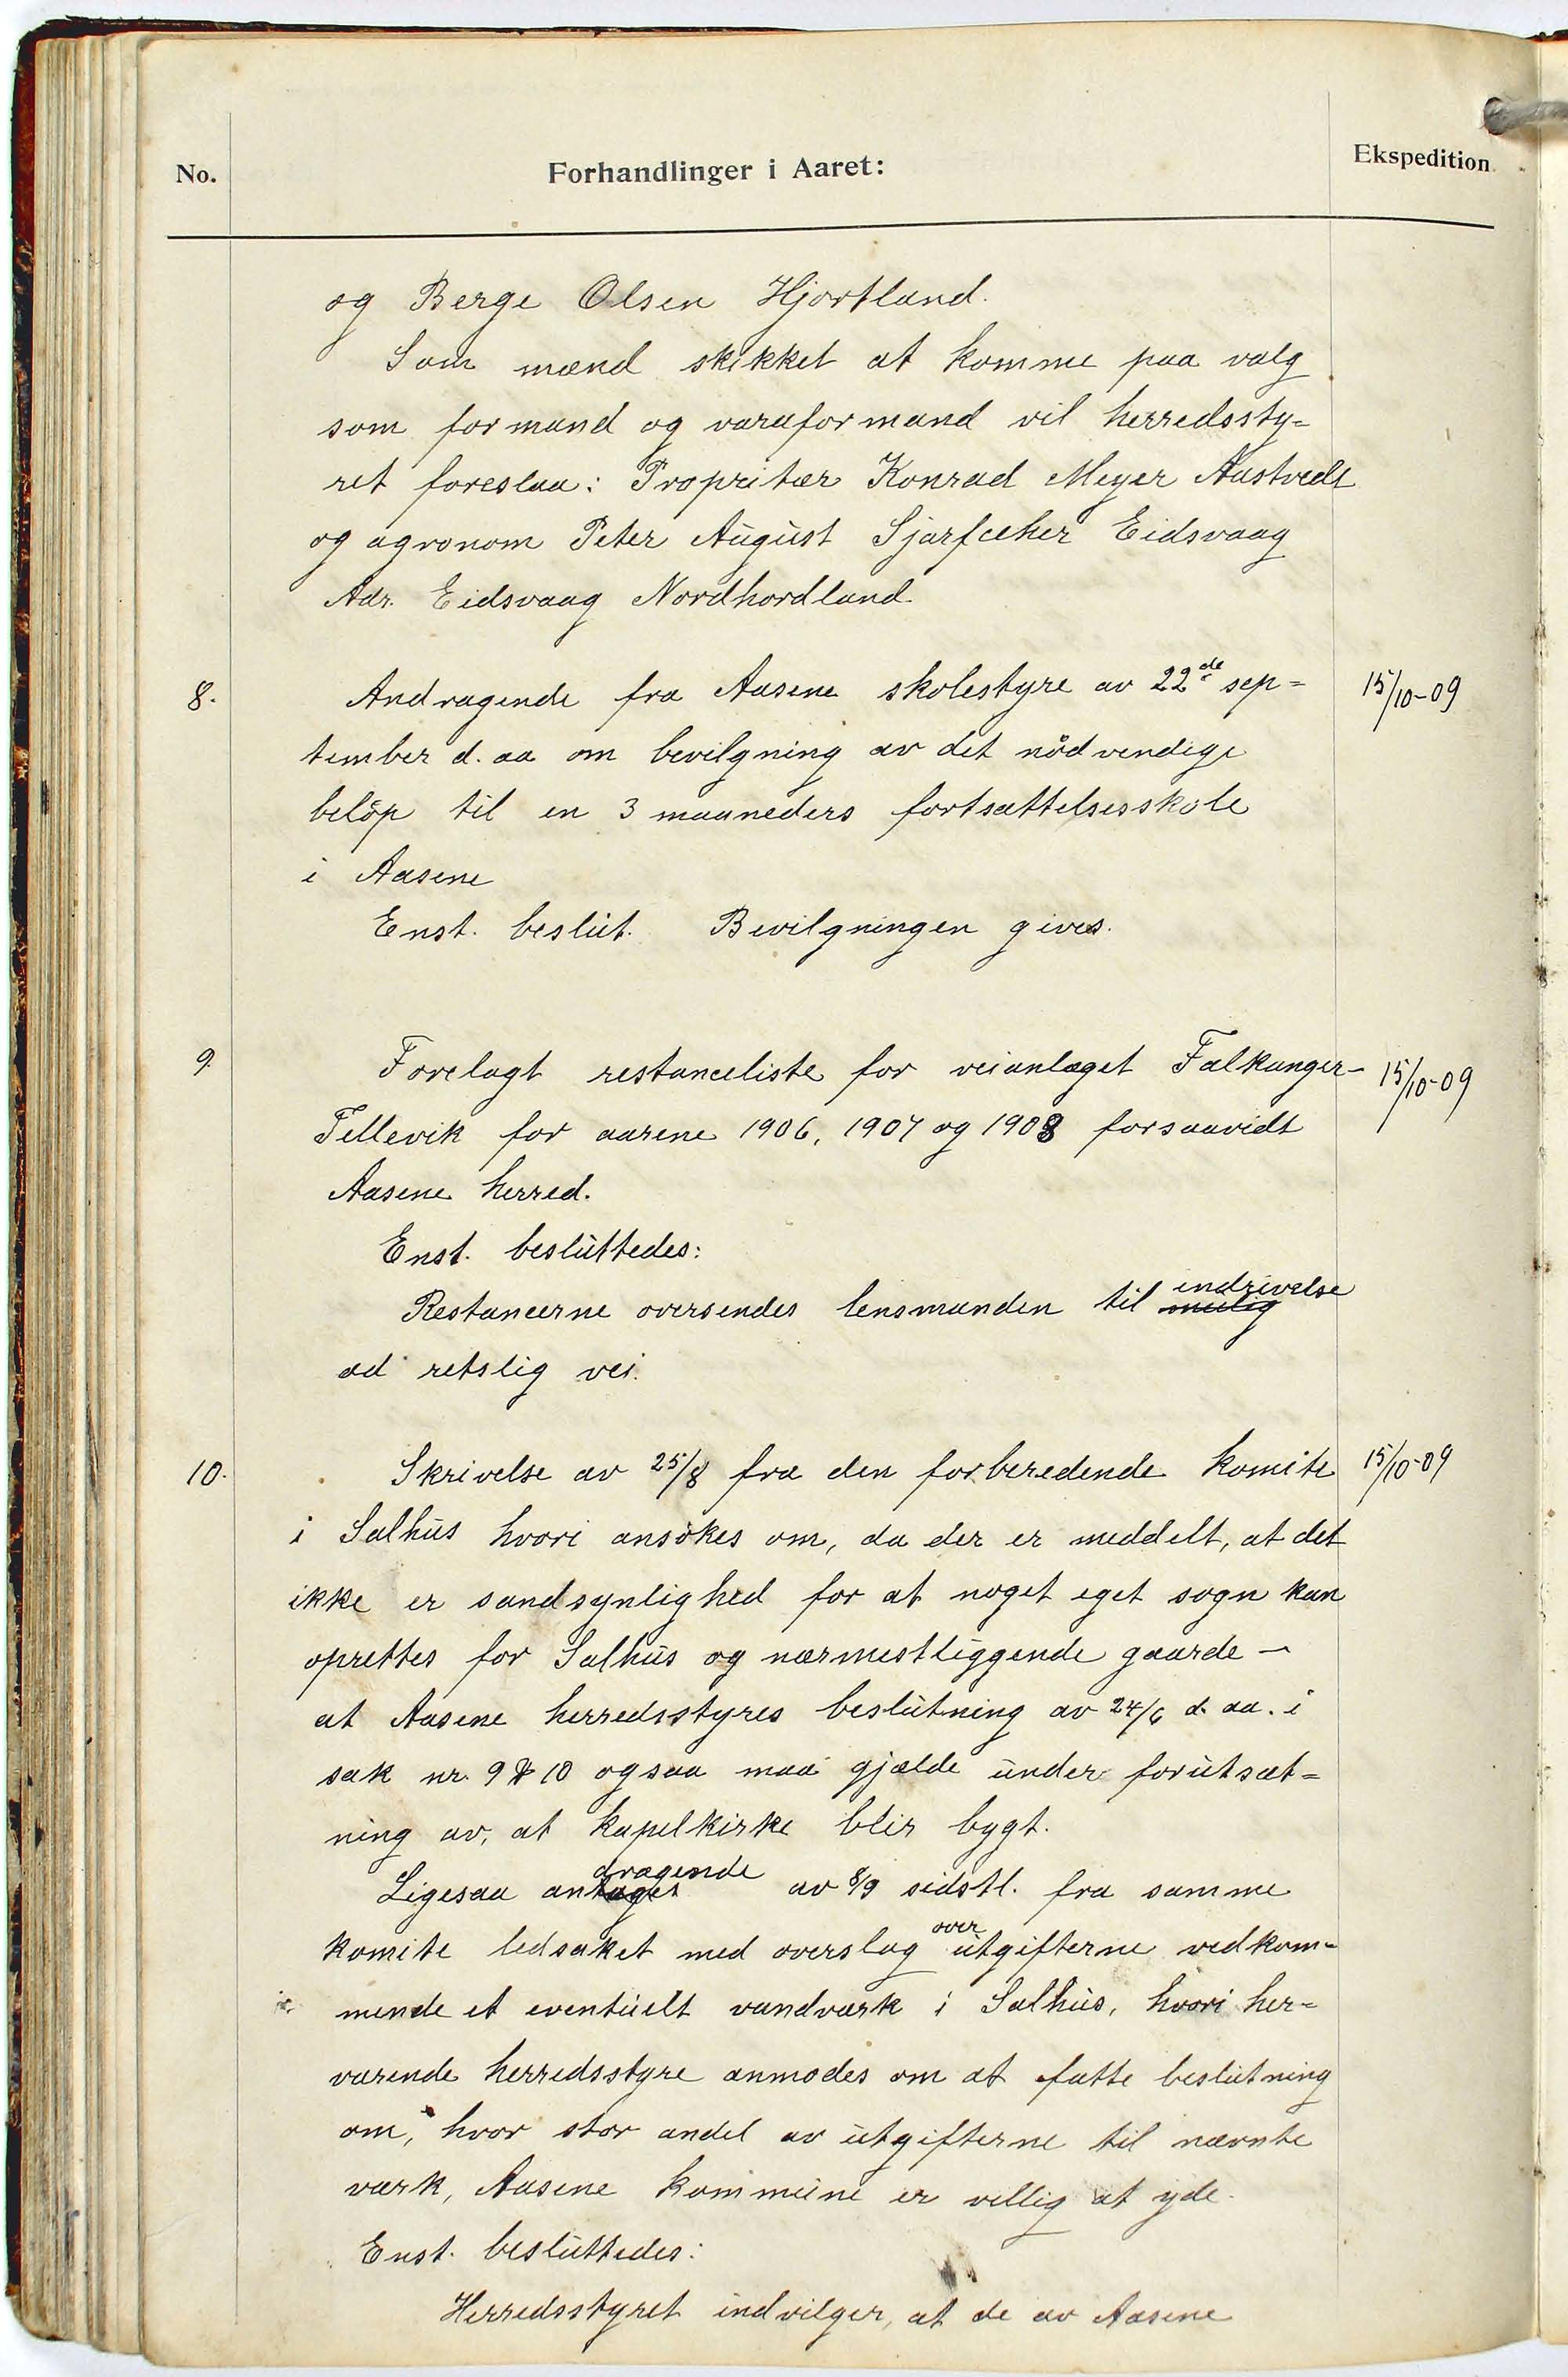 No.
Forhandlinger i Aaret:
Ekspedition
og Berge Olsen Hjortland.
Som mænd skikket at komme paa valg
som formand og varaformand vil herredssty=
ret foreslaa: Propritær Konrad Meyer Aastvedt
og agronom Peter August Eidsvaag
Adr. Eidsvaag Nordhordland
8. Andragende fra Aasene skolestyre av 22de sep= 15/10-09
tember d. aa om bevilgning av det nödvendige
belöp til en 3 maaneders fortsættelsesskole
i Aasene
Enst. beslut. Bevilgningen gives.
9. Forelagt restanceliste for veianlæget Falkanger- 15/10-09
Tellevik for aarene 1906, 1907 og 1908 forsaavidt
Aasene herred.
Enst. besluttedes:
Restancerne oversendes lensmanden til indrivelse
ad retslig vei.
10. Skrivelse av 25/8 fra den forberedende komite 15/10-09
i Salhus hvori ansökes om, da der er meddelt, at det
ikke er sandsynlighed for at noget eget sogn kan
oprettes for Salhus og nærmestliggende gaarde –
at Aasene herredsstyres beslutning av 24/6 d. aa. i
sak nr. 9 & 10 ogsaa maa gjælde under forutsæt=
ning av, at kapelkirke blir bygt.
Ligesaa andragende av 8/9 sidstl. fra samme
komite ledsaket med overslag over utgifterne vedkom=
mende et eventuelt vandværk i Salhus, hvori her=
værende herredsstyre anmodes om at fatte beslutning
om, hvor stor andel av utgifterne til nævnte
værk, Aasene kommune er villig at yde.
Enst. besluttedes:
Herredsstyret indvilger, at de av Aasene